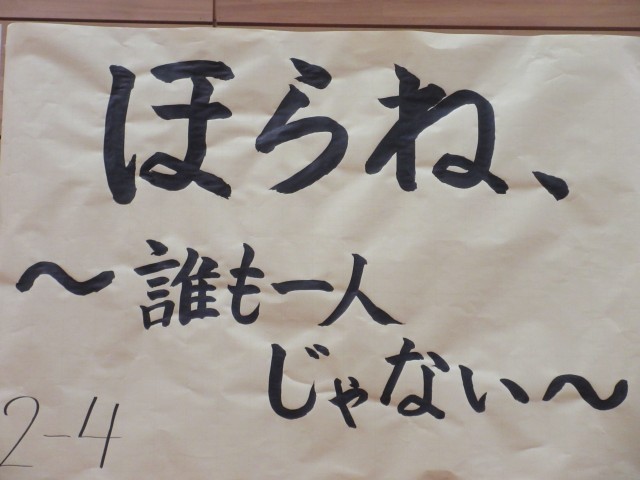 ほらね、
〜誰も一人
じゃない〜
2-4